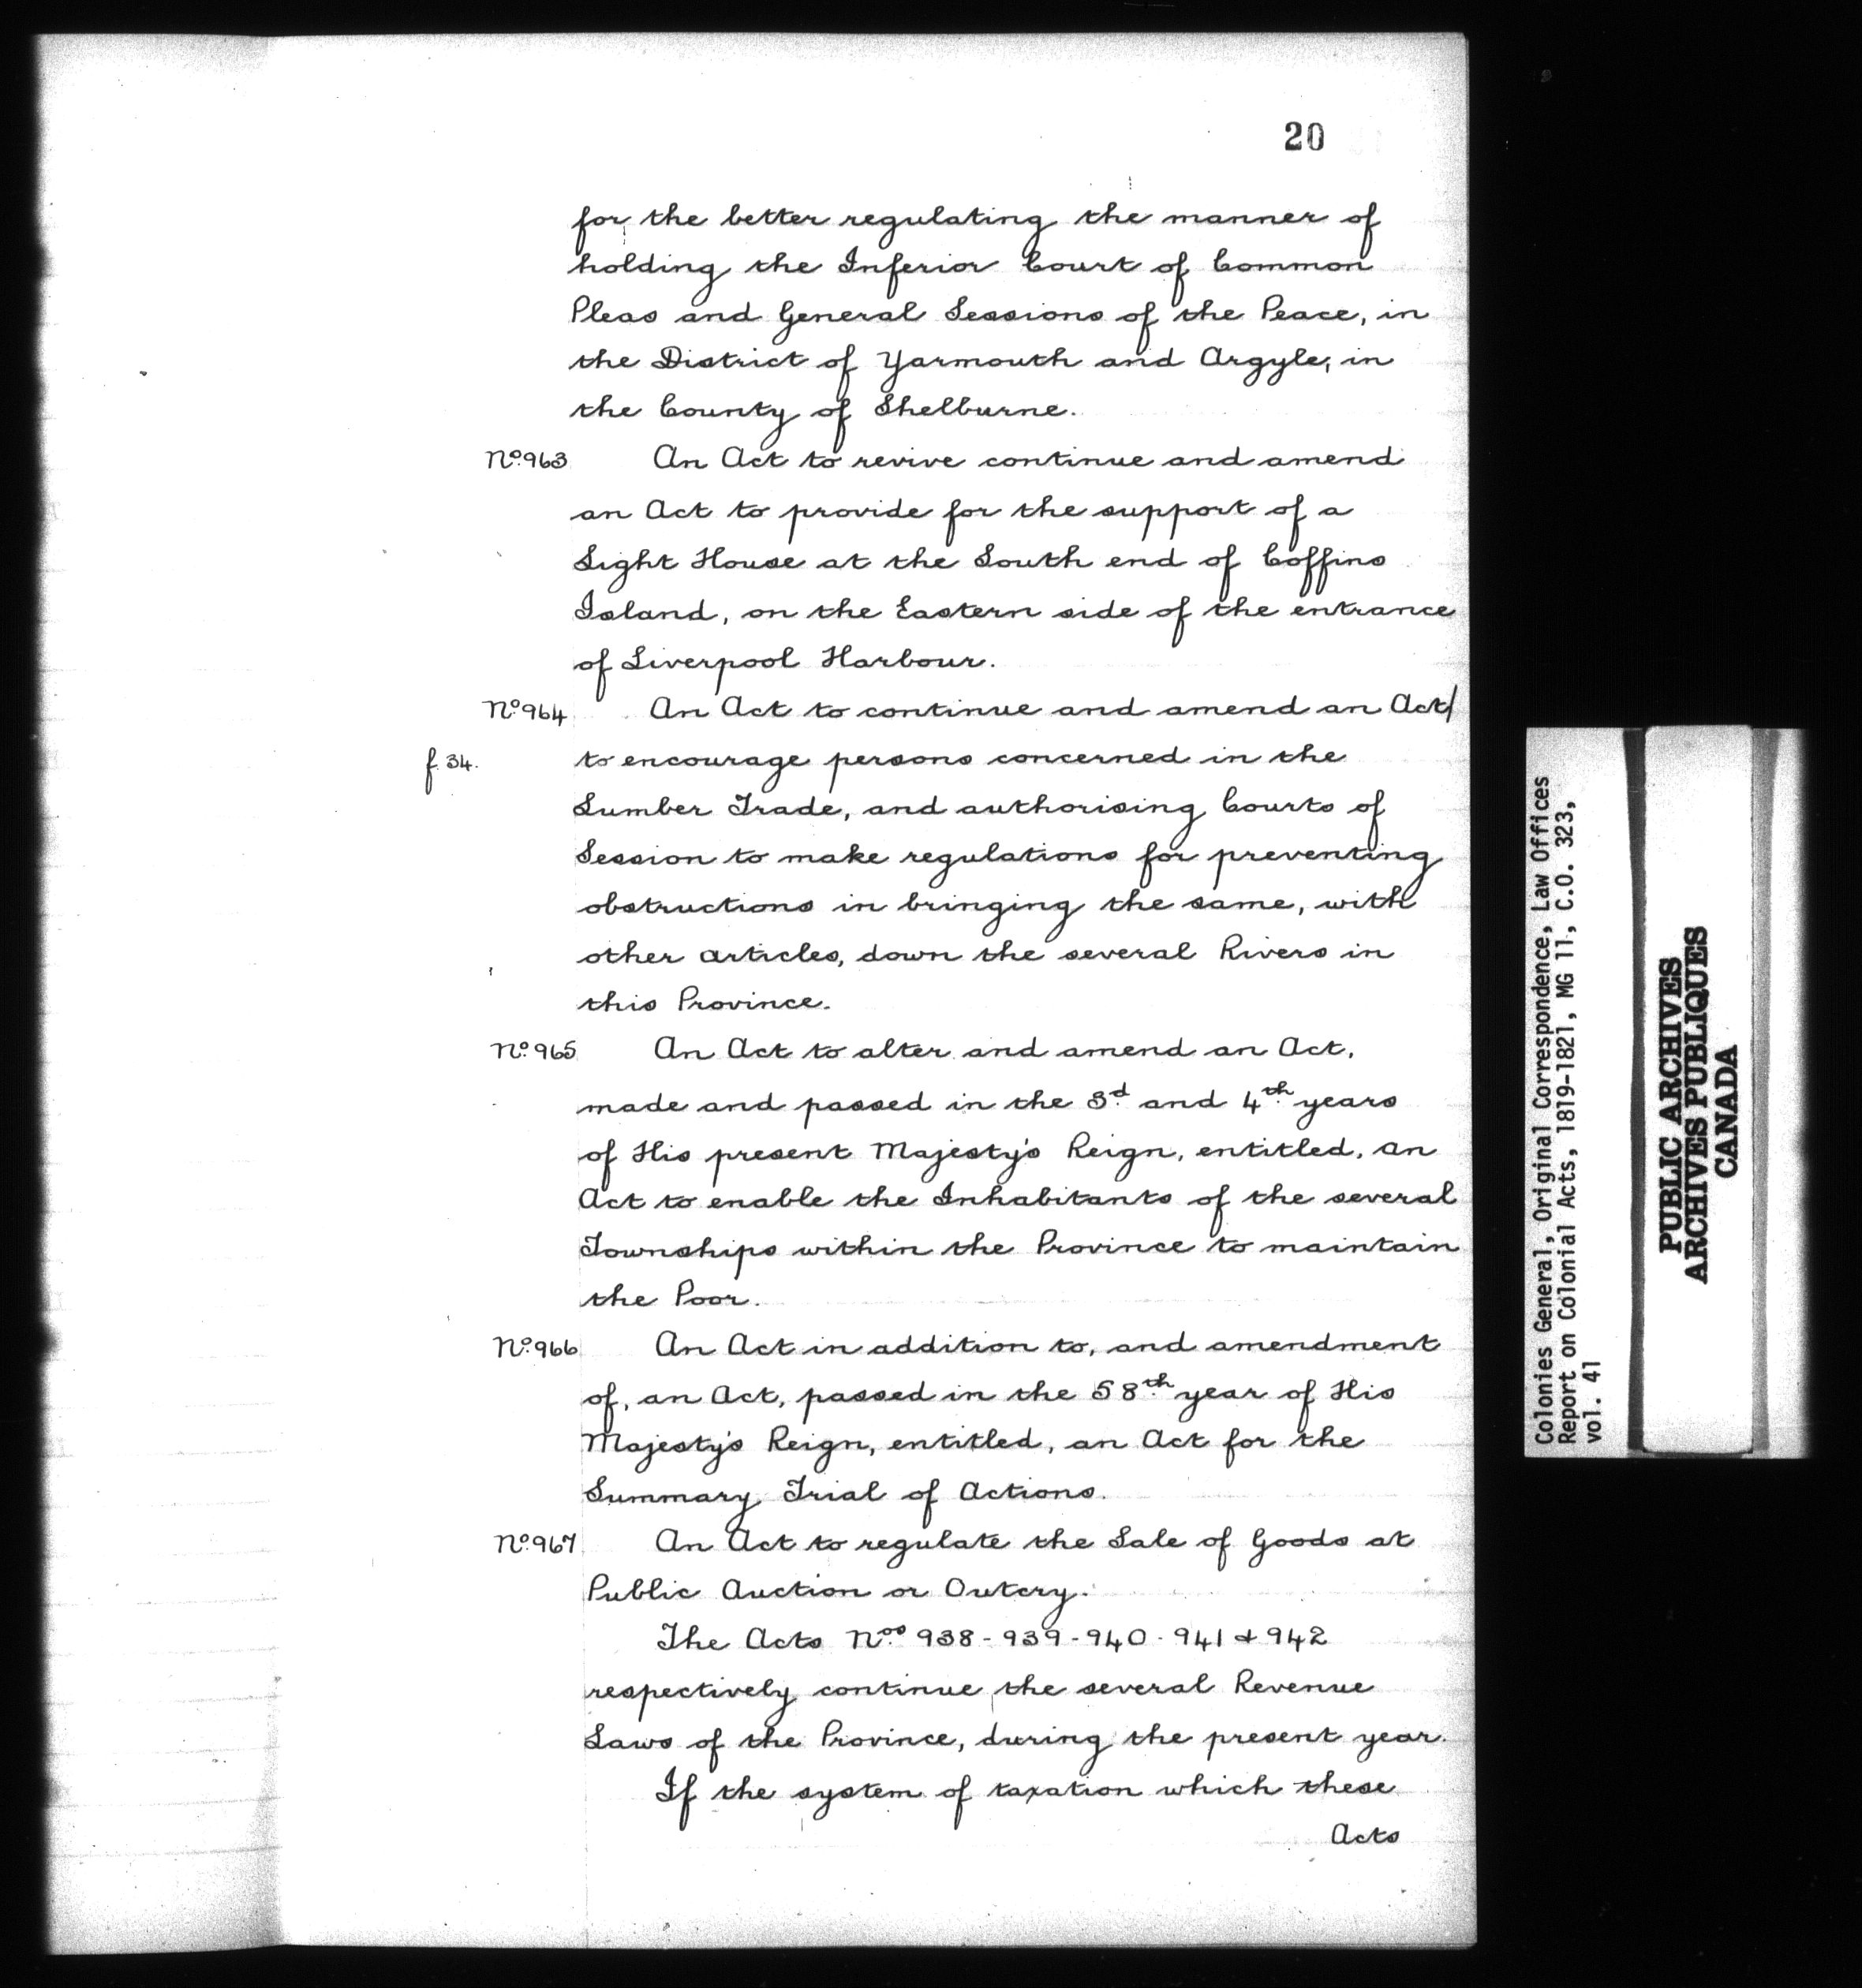 20
for the better regulating the manner of
holding the Inferior Court of Common
Pleas and General Sessions of the Peace, in
the District of Yarmouth and Argyle, in
the County of Shelburne.
No. 963 An Act to revive continue and amend
an Act to provide for the support of a
Light House at the South end of Coffins
Island, on the Eastern side of the entrance
of Liverpool Harbour.
No. 964 An Act to continue and amend an Act/
f. 34. to encourage persons concerned in the
Lumber Trade, and authorising Courts of
Session to make regulations for preventing
obstructions in bringing the same, with
other articles, down the several Rivers in
this Province.
No. 965 An Act to alter and amend an Act,
made and passed in the 3d and 4th years
of His present Majesty's Reign, entitled, an
Act to enable the Inhabitants of the several
Townships within the Province to maintain
the Poor.
No. 966 An Act in addition to, and amendment
of, an Act, passed in the 58th year of His
Majesty's Reign, entitled, an Act for the
Summary Trial of Actions.
No. 967 An Act to regulate the Sale of Goods at
Public Auction or Outcry.
The Acts Nos 938-939-940-941 & 942
respectively continue the several Revenue
Laws of the Province, during the present year.
If the system of taxation which these
Acts
Colonies General, Original Correspondence, Law Offices
Report on Colonial Acts, 1819-1821, MG 11, C.O. 323,
vol. 41
PUBLIC ARCHIVES
ARCHIVES PUBLIQUES
CANADA